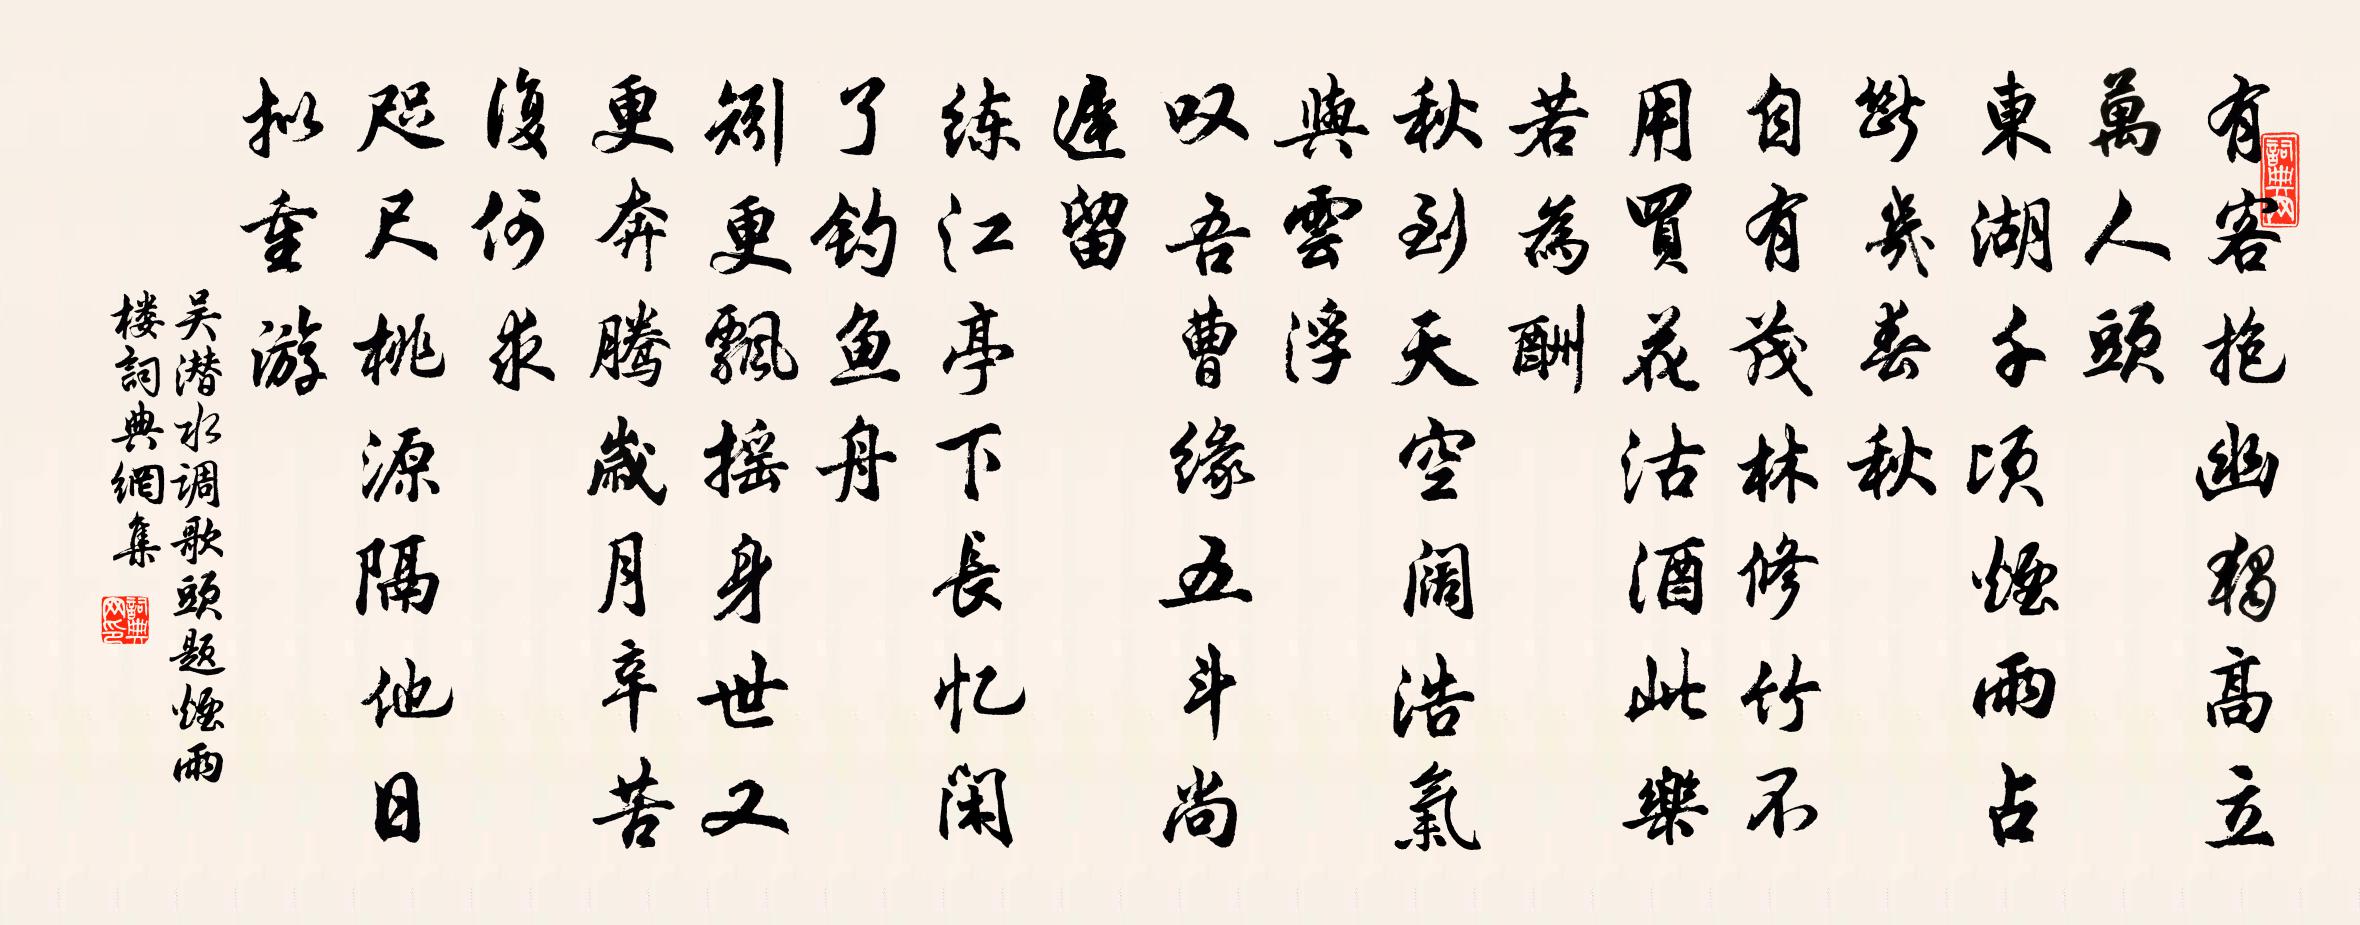 有客抱幽獨高立
萬人頭
東湖千頃煙雨占
斷幾春秋
自有茂林修竹不
用買花沽酒此樂
若為酬
秋到天空闊浩氣
與雲浮
叹吾曹緣五斗尚
遲留
练江亭下長忆闲
了钓鱼舟
矧更飄摇身世又
更奔腾歲月辛苦
復何求
咫尺桃源隔他日
拟重游
吴潜水调歌頭题煙雨
楼詞典網集
詞典网
詞典网印